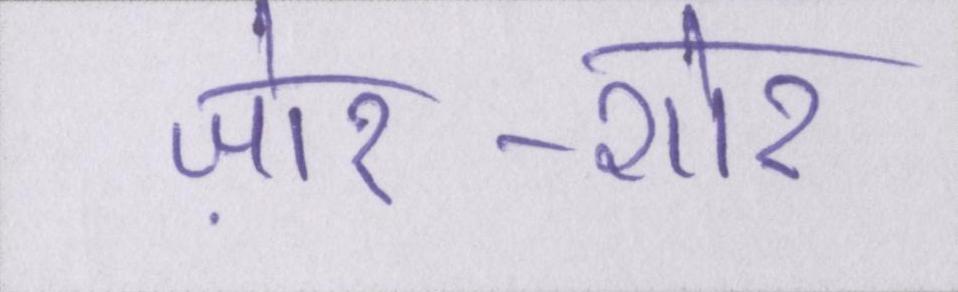 ज़ोर -शोर